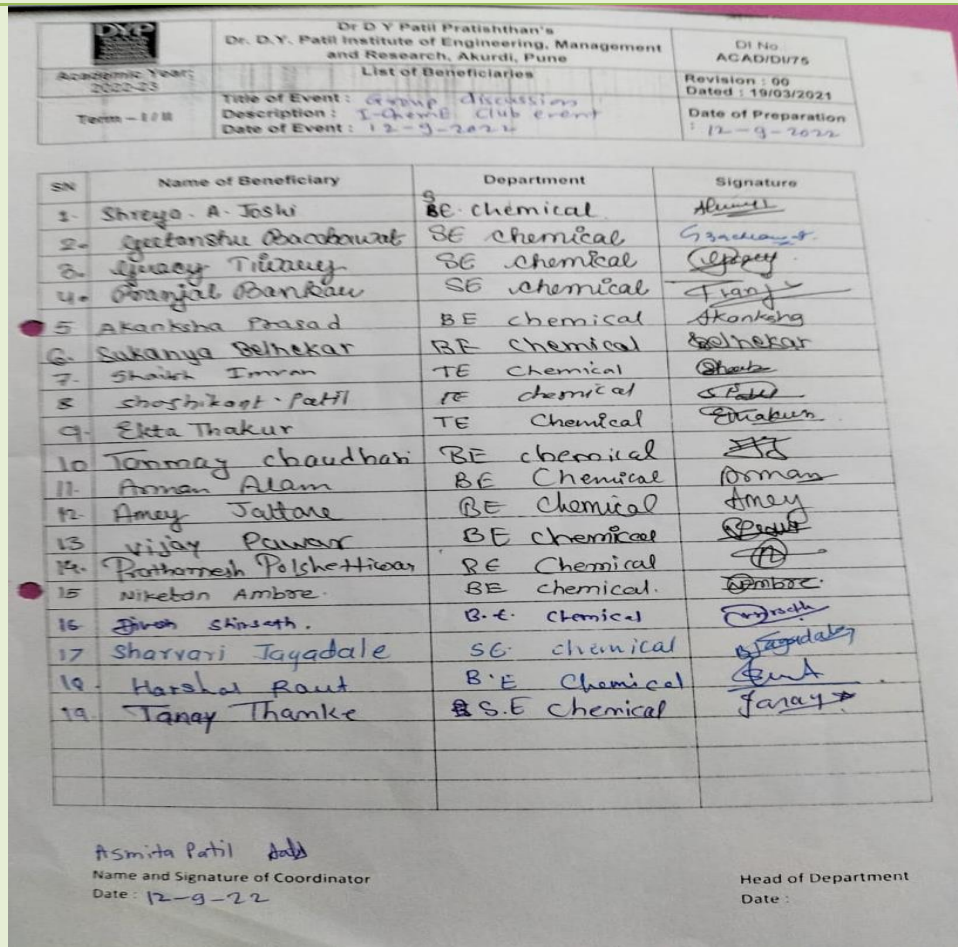 DYP
Dr D Y Patil Pratishthan's
Dr. D.Y. Patil Institute of Engineering, Management
and Research, Akurdi, Pune
DI No.
ACAD/DI/75
Academic Year:
2022-23
List of Beneficiaries
Revision : 00
Dated : 19/03/2021
Term - I / II
Title of Event : Group discussion
Description : I-ChemE Club event
Date of Event : 12-9-2022
Date of Preparation
: 12-9-2022
SN Name of Beneficiary Department Signature
1- Shreya. A. Joshi SE. chemical
2- Geetanshu SE chemical
3- SE chemical
4- Pranjal SE chemical Pranj
5 Akanksha Prasad BE chemical Akanksha
6- Sukanya Belhekar BE Chemical Belhekar
7- Shaikh Imran TE Chemical
8 Shashikant. Patil TE chemical SPatil
9- Ekta Thakur TE Chemical EThakur
10 Tanmay chaudhari BE chemical
11- Arman Alam BE Chemical Arman
12- Amey BE Chemical Amey
13 Vijay Pawar BE Chemical
14. Prathamesh Polshettiwar BE Chemical
15 Niketan Ambre. BE chemical. NAmbre.
16 B.E. Chemical
17 Sharvari Jagadale SE. chemical Jagadale
18. Harshal Raut B.E Chemical
19. Tanay Thamke S.E Chemical Tanay
Asmita Patil
Name and Signature of Coordinator
Date : 12-9-22
Head of Department
Date :